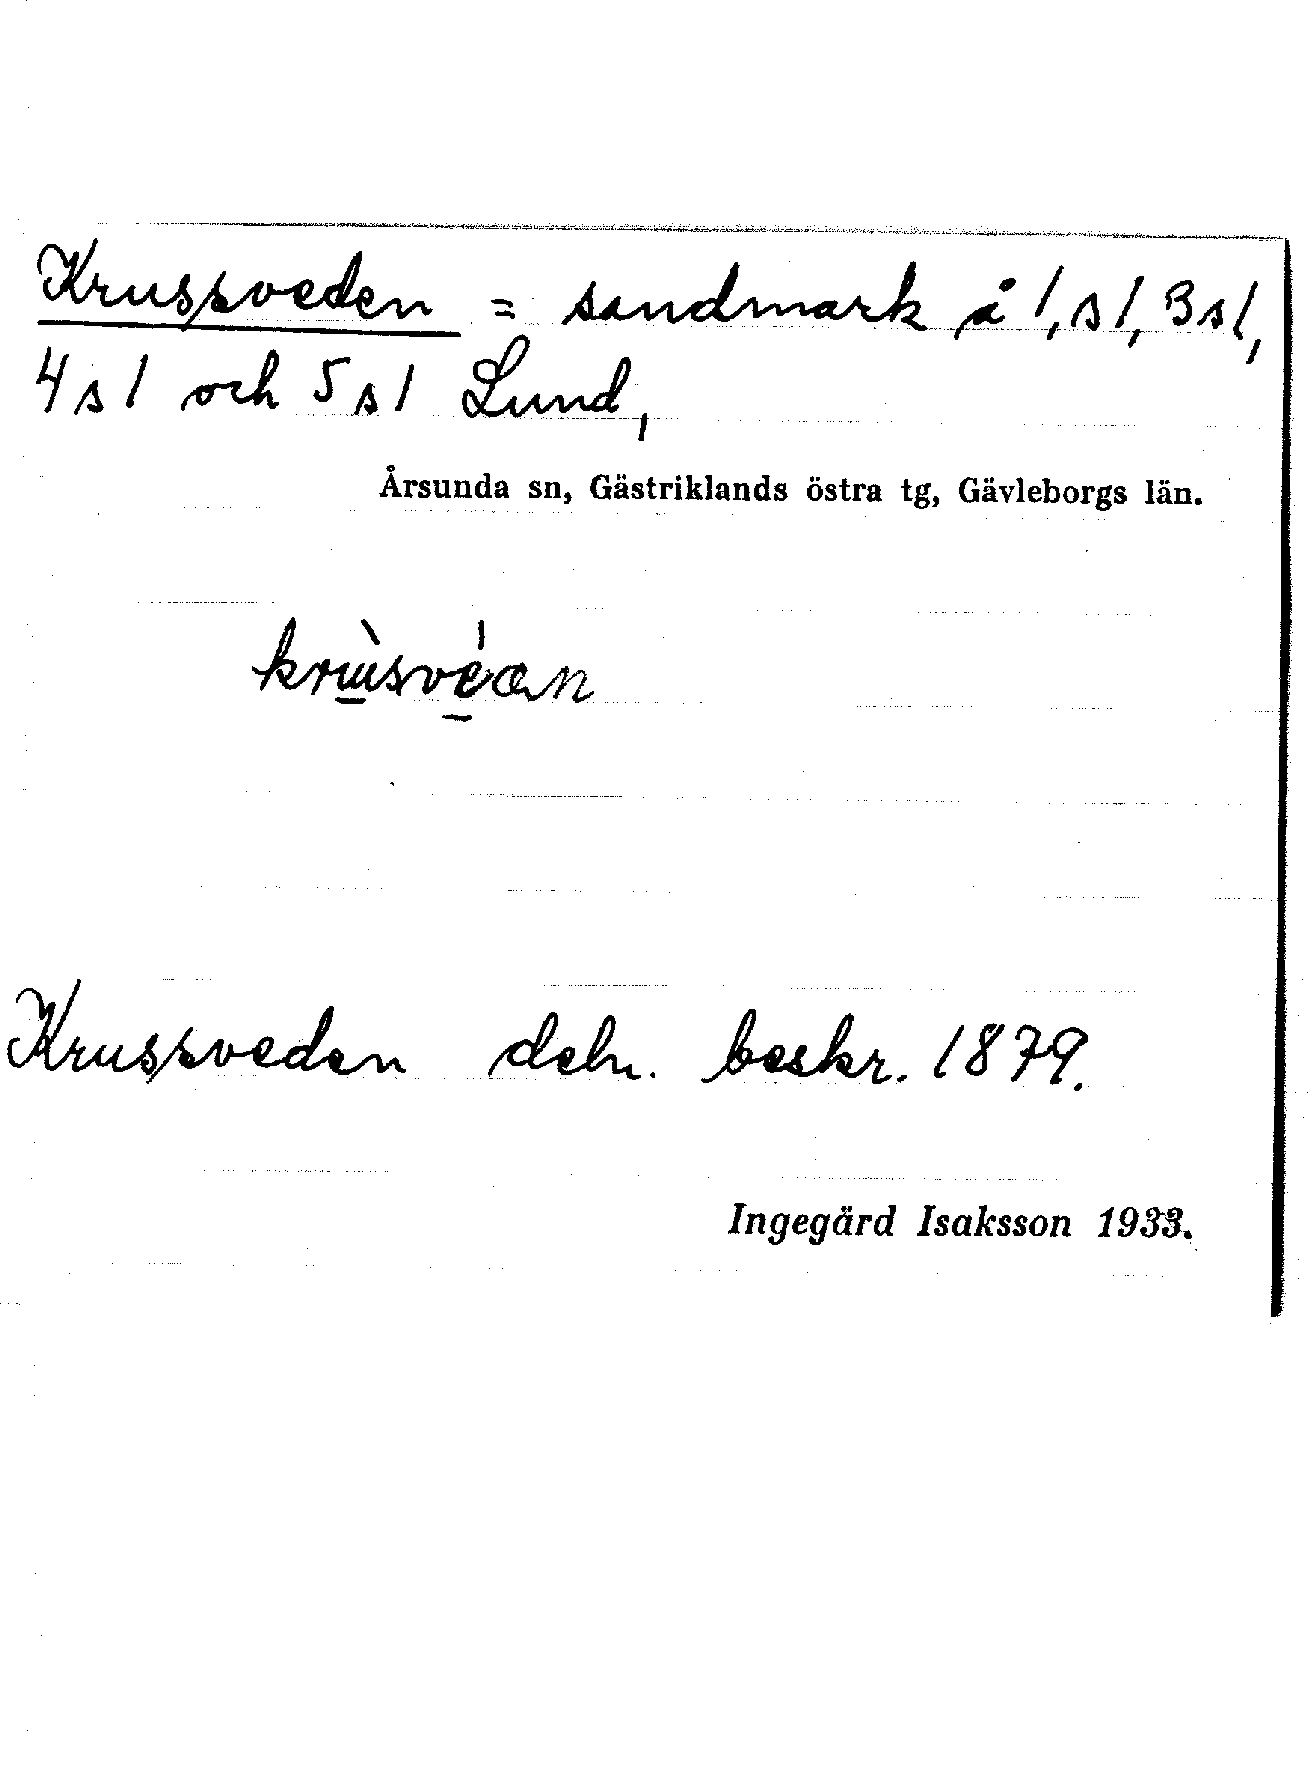 Krussveden = sandmark å 1, s 1, 3 s 1,
4 s 1 och 5 s 1 Lund,
Årsunda sn, Gästriklands östra tg, Gävleborgs län.
Krussveden deln. beskr. 1879.
Ingegärd Isaksson 1933.